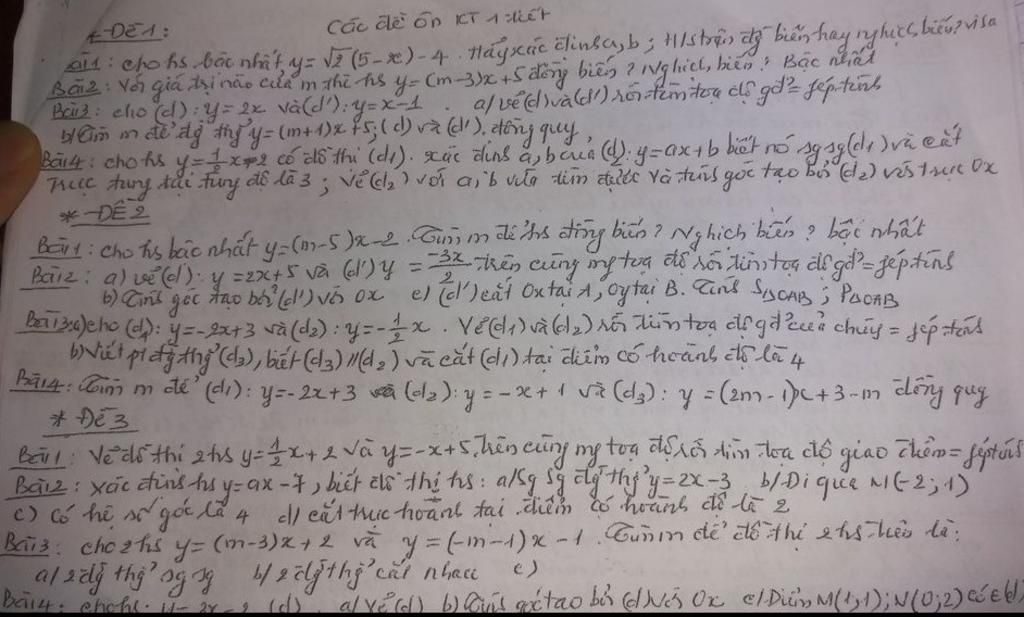 Các đề ôn KT 1 tiết
* ĐỀ 1:
Bài 1: cho hs bậc nhất y = √2 (5 - x) - 4. Hãy xác định a, b; H/s trên đg biến hay nghịch biến? vì sao
Bài 2: Với giá trị nào của m thì hs y = (m-3)x + 5 đồng biến? Nghịch biến? Bậc nhất
Bài 3: cho (d): y = 2x và (d'): y = x - 1. a/ vẽ (d) và (d') rồi tìm toạ độ gđ = fép tính
b/ Tìm m để đg thg y = (m+1)x + 5; (d) và (d') đồng quy
Bài 4: cho hs y = 1/2 x + 2 có đồ thi (d1). xác định a, b của (d2): y = ax + b biết nó sg sg (d1) và cắt
trục tung tại tung độ là 3; vẽ (d2) với a, b vừa tìm được và tính góc tạo bởi (d2) với trục Ox
* ĐỀ 2
Bài 1: cho hs bậc nhất y = (m-5)x - 2. Tìm m để hs đồng biến? Nghịch biến? bậc nhất
Bài 2: a) vẽ (d): y = 2x + 5 và (d') y = -3x/2 trên cùng mp toạ độ rồi tìm toạ độ gđ = fép tính
b) Tính góc tạo bởi (d') với Ox c) (d') cắt Ox tại A, Oy tại B. Tính S△OAB; P△OAB
Bài 3: a) cho (d1): y = -2x + 3 và (d2): y = -1/2 x. Vẽ (d1) và (d2) rồi tìm toạ độ gđ của chúng = fép tính
b) Viết pt đg thg (d3), biết (d3) // (d2) và cắt (d1) tại điểm có hoành độ là 4
Bài 4: Tìm m để (d1): y = -2x + 3 (d2): y = -x + 1 và (d3): y = (2m-1)x + 3 - m đồng quy
* ĐỀ 3
Bài 1: Vẽ đồ thi 2 hs y = 1/2 x + 2 và y = -x + 5 trên cùng mp toạ độ rồi tìm toạ độ giao điểm = fép tính
Bài 2: xác định hs y = ax - 7, biết đồ thị hs: a/ sg sg đg thg y = 2x - 3 b/ Đi qua M(-2; 1)
c) có hệ số góc là 4 d/ cắt trục hoành tại điểm có hoành độ là 2
Bài 3: cho 2 hs y = (m-3)x + 2 và y = (-m-1)x - 1. Tìm m để đồ thị 2 hs trên là:
a/ 2 đg thg sg sg b/ 2 đg thg cắt nhau c)
Bài 4: cho hs: y = 2x - 2 (d). a/ Vẽ (d) b) Tính góc tạo bởi (d) với Ox c/ Điểm M(1,1); N(0;2) có ∈ (d)